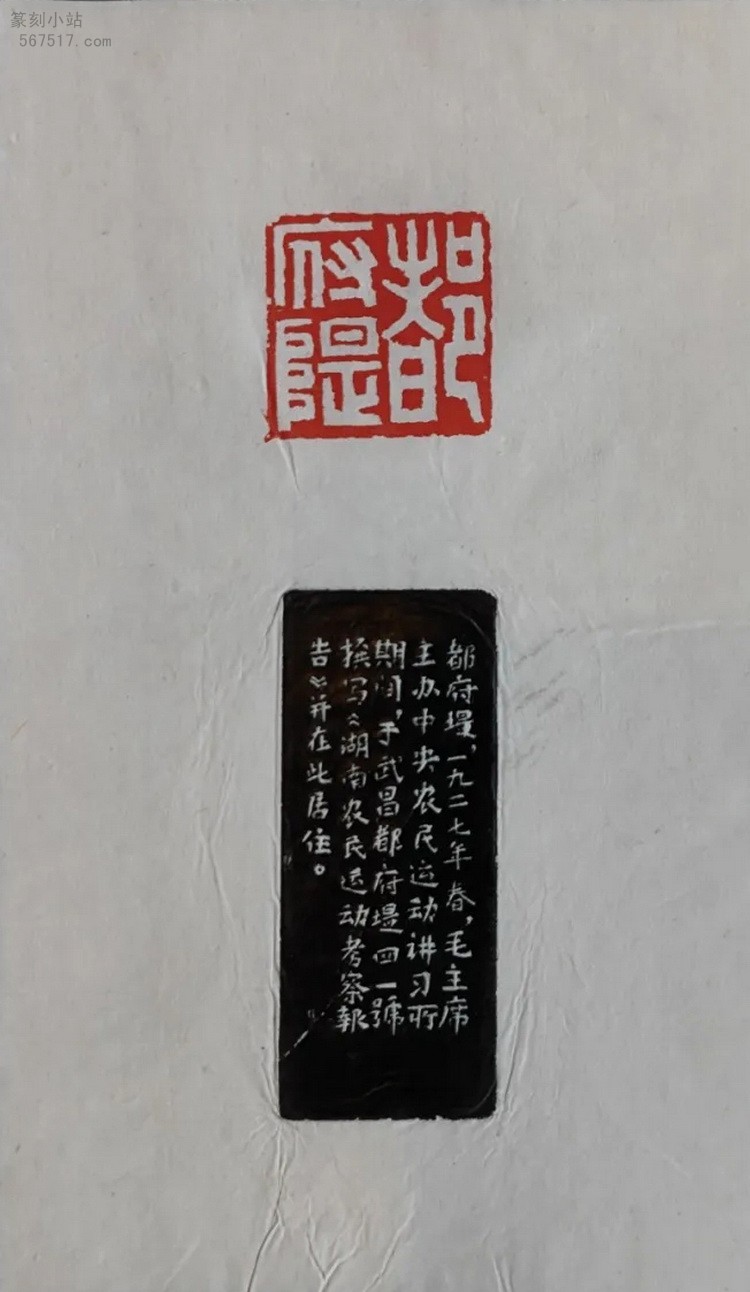 篆刻小站
567517.com
都
府隄
都府堤，一九二七年春，毛主席
主办中央农民运动讲习所
期间，于武昌都府堤四一號
撰写《湖南农民运动考察報
告》并在此居住。